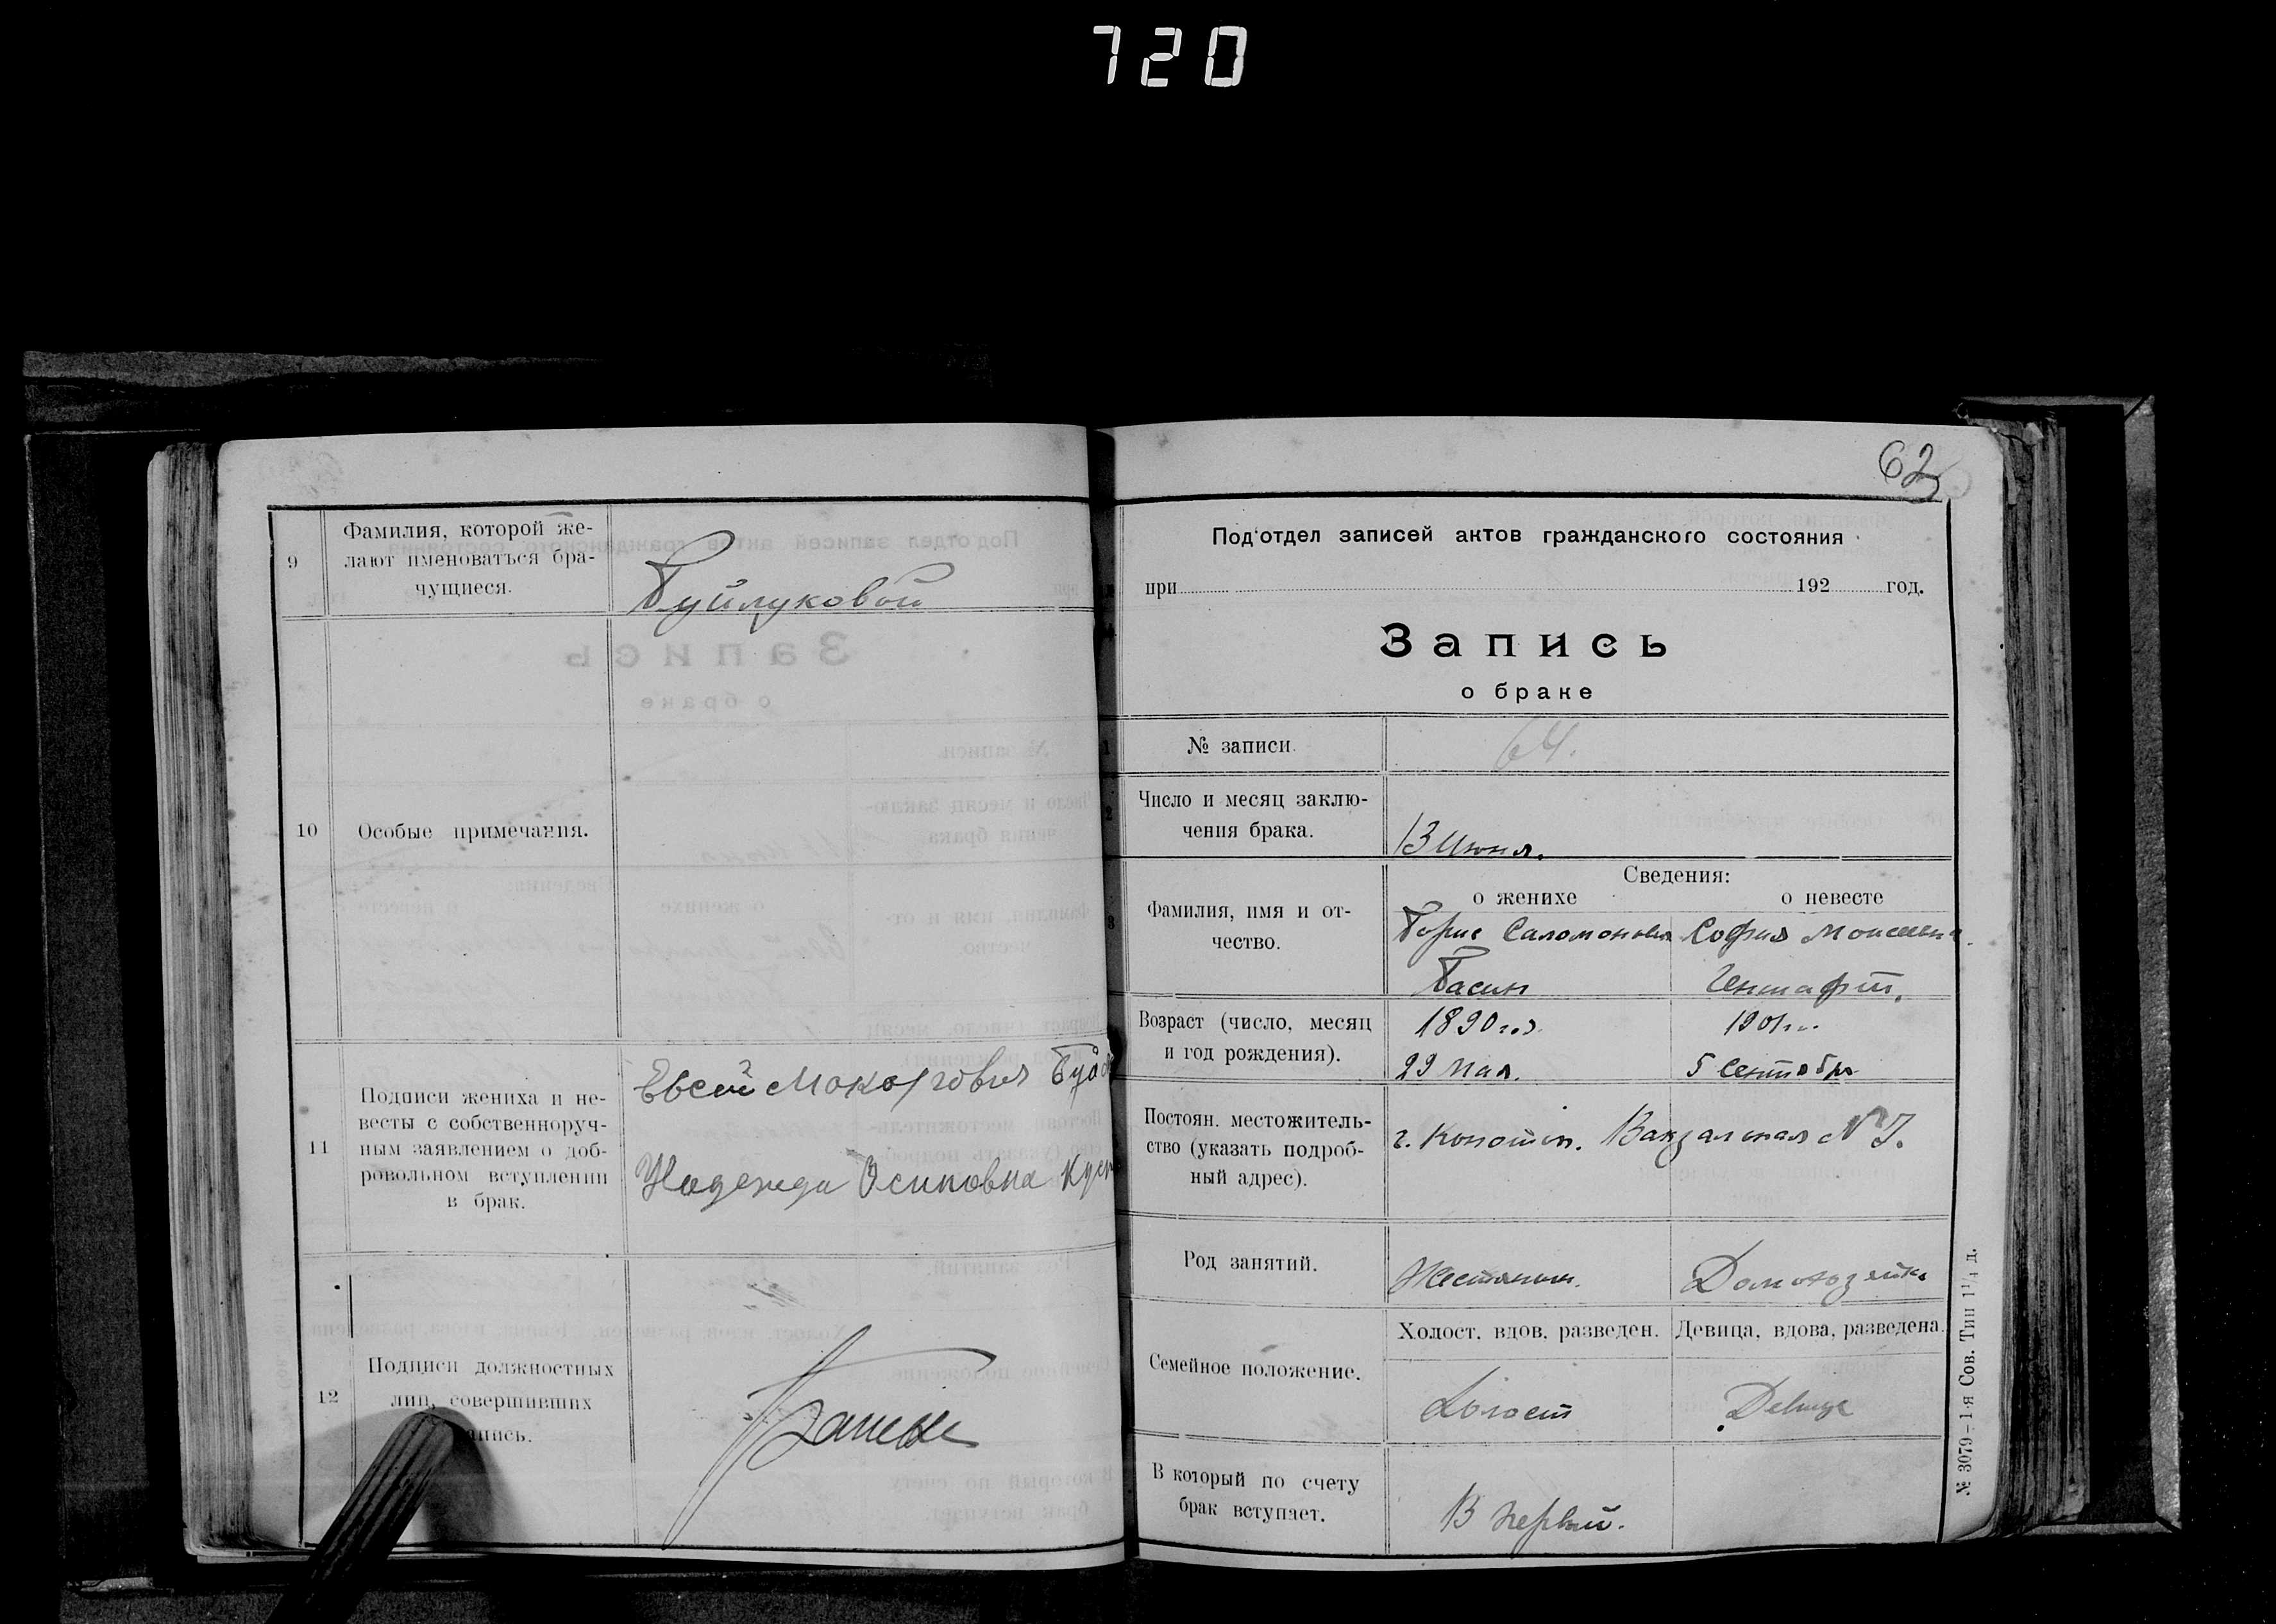 720
9
Фамилия, которой же-
лают именоваться бра-
чущиеся.
Буйлуковой
10
Особые примечания.
11
Подписи жениха и не-
весты с собственноруч-
ным заявлением о доб-
ровольном вступлении
в брак.
Евсей Макарович
Надежда Осиповна
12
Подписи должностных
лиц, совершивших
62
Под'отдел записей актов гражданского состояния
при 192 год.
Запись
о браке
1
№ записи
64.
2
Число и месяц заклю-
чения брака.
13 Июня.
3
Фамилия, имя и от-
чество.
Сведения:
о женихе
о невесте
Борис Саломонович
София
Басин
Гентафт.
Возраст (число, месяц
и год рождения).
1890 год
1901 г.
29 Мая.
5 Сентября
Постоян. местожитель-
ство (указать подроб-
ный адрес).
г. Конотоп. Вокзальная №
Род занятий.
Жестяник.
Домохозяйка
Семейное положение.
Холост. вдов. разведен.
Девица, вдова, разведена.
Холост
Девица
В который по счету
брак вступает.
В первый.
№ 3079-1-я Сов. Тип 1¹/₄ д.